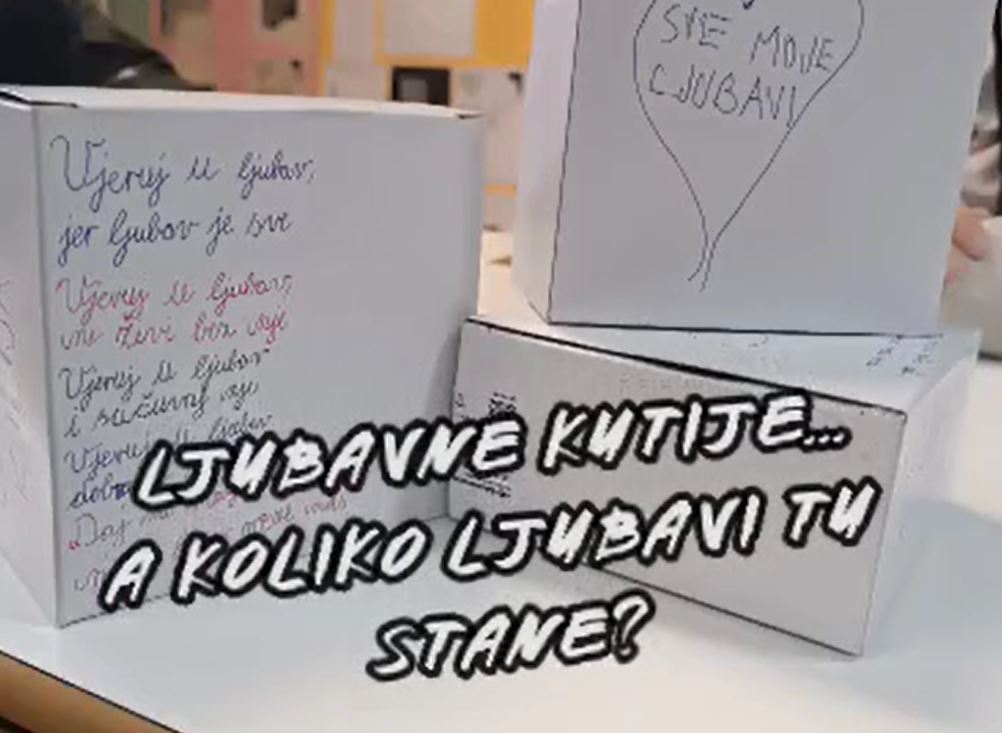 SVE MOJE
LJUBAVI
Vjeruj u ljubav,
jer ljubav je sve
Vjeruj u ljubav,
ne živi bez nje
Vjeruj u ljubav
i sačuvaj nje
Vjeruj u ljubav
"Daj
LJUBAVNE KUTIJE...
A KOLIKO LJUBAVI TU
STANE?